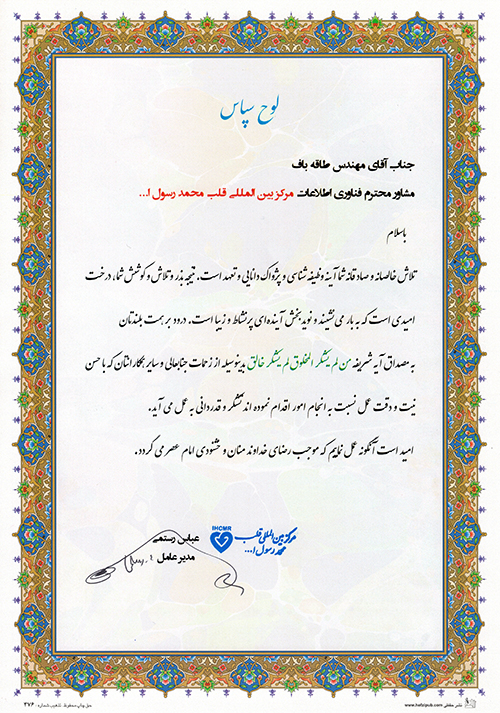 لوح سپاس
جناب آقای مهندس طاقه باف
مشاور محترم فناوری اطلاعات مرکز بین المللی قلب محمد رسول ا...
باسلام
تلاش خالصانه و صادقانه شما آینه وظیفه شناسی و پژواک دانایی و تعهد است. نتیجه بذر و تلاش و کوشش شما، درخت
امیدی است که به بار می نشیند و نوید بخش آینده ای پرنشاط و زیبا است. درود بر همت بلندتان
به مصداق آیه شریفه من لم یشکر المخلوق لم یشکر خالق بدینوسیله از زحمات جنابعالی و سایر همکارانتان که با حسن
نیت و دقت عمل نسبت به انجام امور اقدام نموده اند تشکر و قدردانی به عمل می آید.
امید است آنگونه عمل نمایم که موجب رضای خداوند منان و خشنودی امام عصر می گردد.
IHCMR
مرکز بین المللی قلب
محمد رسول ا...
عباس رستمی
مدیر عامل
نشر حفظی www.hafzipub.com
حق چاپ محفوظ. تذهیب شماره: ۳۷۶